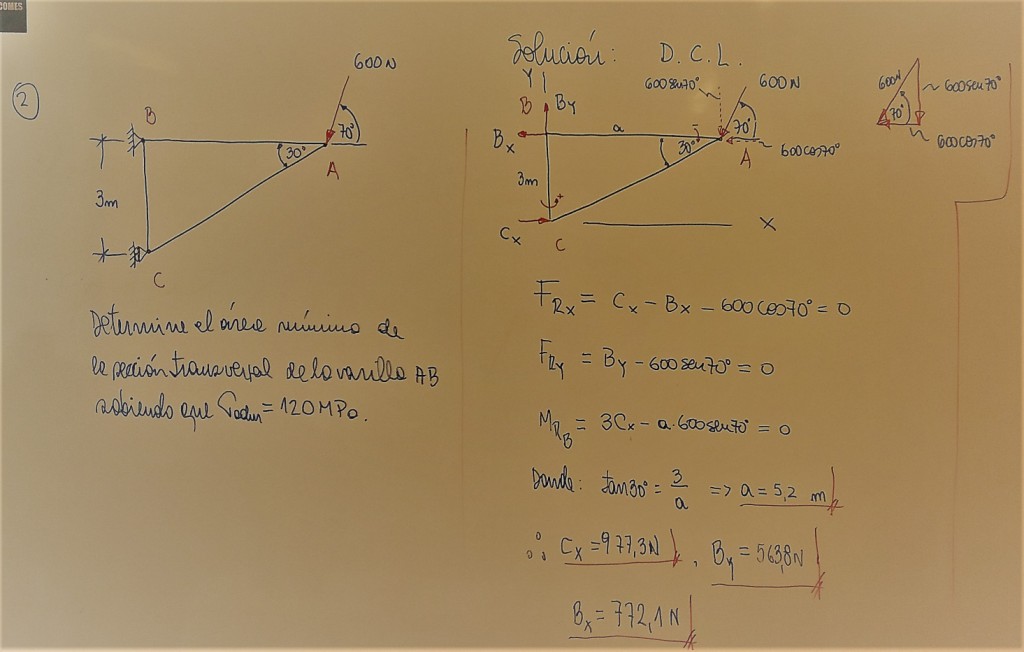 COMES
2
600N
70°
B
30°
A
3m
C
Determine el área mínima de
la sección transversal de la varilla AB
sabiendo que σadm = 120 MPa.
Solución: D.C.L.
Y
600sen70°
600N
B By
Bx
a
70°
30°
A
600cos70°
3m
+
Cx
C
X
600N
600sen70°
70°
600cos70°
FRx = Cx - Bx - 600cos70° = 0
FRy = By - 600sen70° = 0
MRB = 3Cx - a.600sen70° = 0
Donde: tan30° = 3/a => a = 5,2 m
∴ Cx = 977,3N , By = 563,8N
Bx = 772,1N